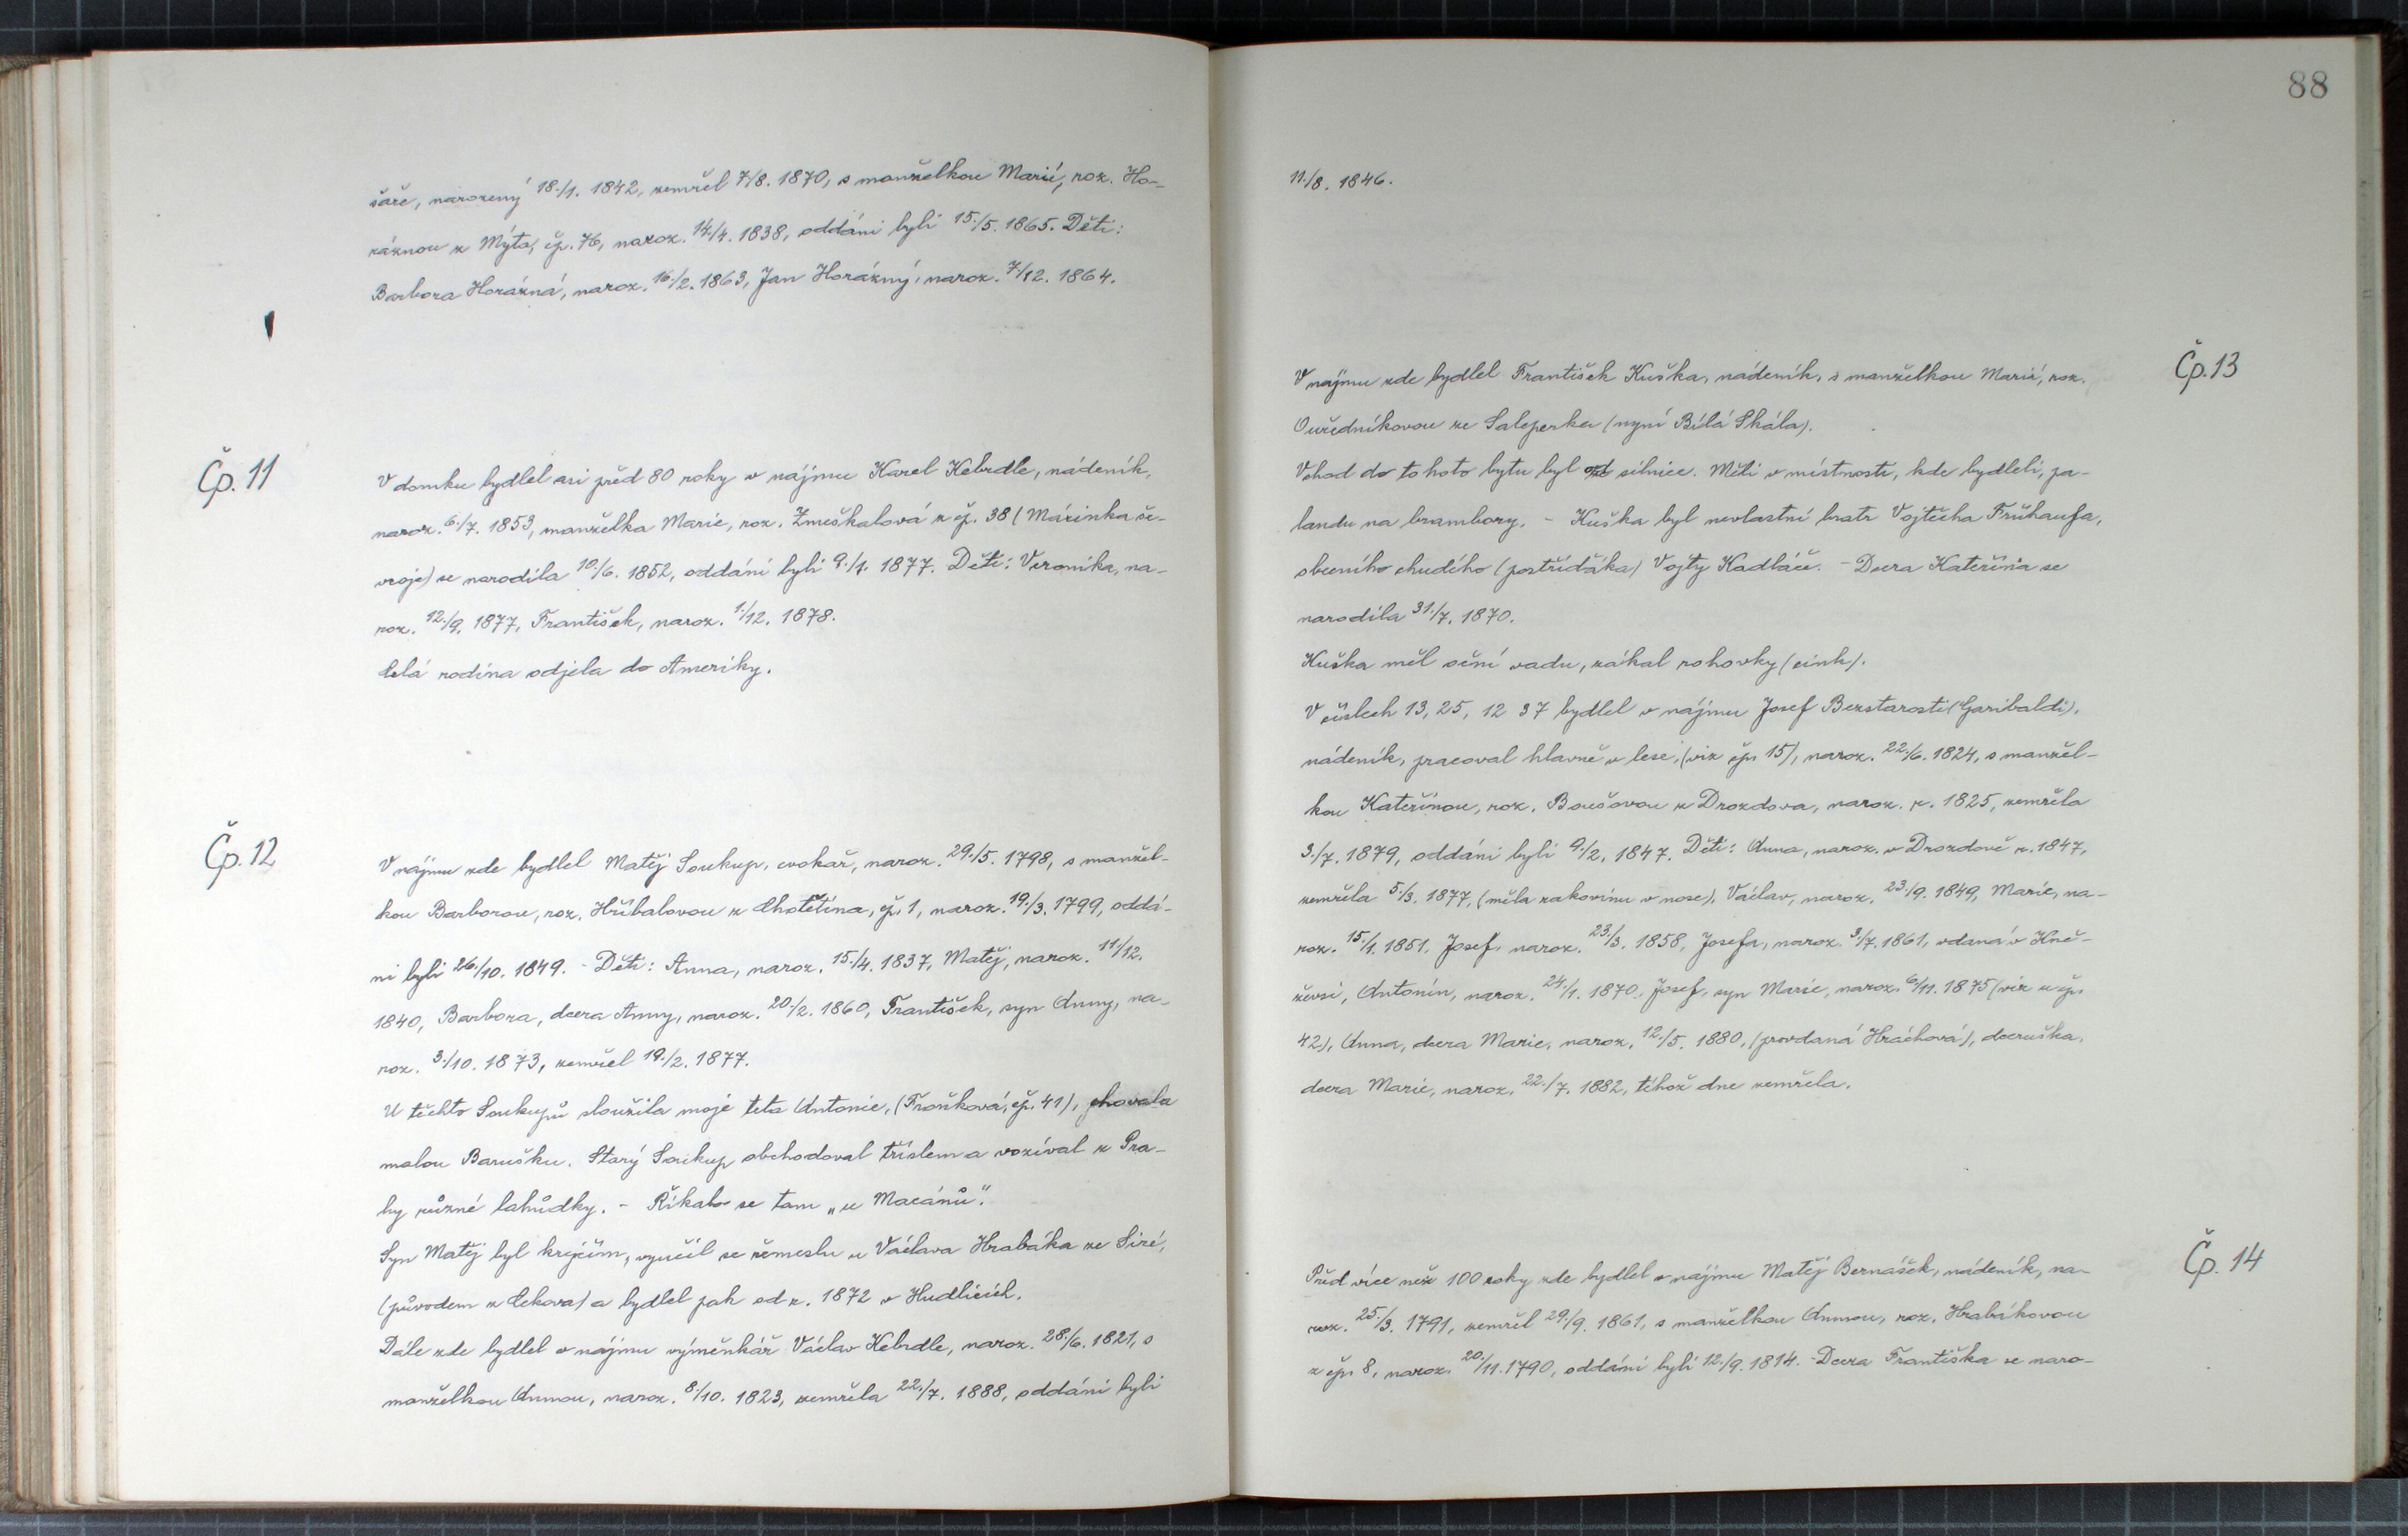 šaře, narozený 18./1. 1842, zemřel 7/8. 1870, s manželkou Marií, roz. Ho-
ráznou z Mýta, čp. 76, naroz. 14./4. 1838, oddáni byli 15./5. 1865. Děti:
Barbora Horázná, naroz. 16./2. 1863, Jan Horázný, naroz. 7./12. 1864.
Čp. 11
V domku bydlel asi před 80 roky v nájmu Karel Kebrdle, nádeník,
naroz. 6./7. 1853, manželka Marie, roz. Zmeškalová z čp. 38 (Mařinka še-
vroje) se narodila 10./6. 1852, oddáni byli 9./7. 1877. Děti: Veronika, na-
roz. 12./9. 1877, František, naroz. 1./12. 1878.
Celá rodina odjela do Ameriky.
Čp. 12
V nájmu zde bydlel Matěj Soukup, cvokař, naroz. 29./5. 1798, s manžel-
kou Barborou, roz. Hříbalovou z Chotětína, čp. 1, naroz. 19./3. 1799, oddá-
ni byli 26./10. 1849. - Děti: Anna, naroz. 15./4. 1837, Matěj, naroz. 11./12.
1840, Barbora, dcera Anny, naroz. 20./2. 1860, František, syn Anny, na-
roz. 3./10. 1873, zemřel 19./2. 1877.
U těchto Soukupů sloužila moje teta Antonie, (Froňková, čp. 41), chovala
malou Barušku. Starý Soukup obchodoval tříslem a vozíval z Pra-
hy různé lahůdky. - Říkalo se tam „u Macánů".
Syn Matěj byl krejčím, vyučil se řemeslu u Václava Hrabáka ze Siré,
(původem z Cekova) a bydlel pak od r. 1872 v Hudlicích.
Dále zde bydlel v nájmu výměnkář Václav Kebrdle, naroz. 28./6. 1821, s
manželkou Annou, naroz. 8./10. 1823, zemřela 22./7. 1888, oddáni byli
88
11./8. 1846.
Čp. 13
V nájmu zde bydlel František Kuška, nádeník, s manželkou Marií, roz.
Ouředníkovou ze Saleperka (nyní Bílá Skála).
Vchod do tohoto bytu byl od silnice. Měli v místnosti, kde bydleli, pa-
landu na brambory. - Kuška byl nevlastní bratr Vojtěcha Frühaufa,
obecního chudého (postřídáka) Vojty Kadláče. - Dcera Kateřina se
narodila 31./7. 1870.
Kuška měl oční vadu, zákal rohovky (cink).
V číslech 13, 25, 12 37 bydlel v nájmu Josef Bezstarosti (Garibaldi),
nádeník, pracoval hlavně v lese, (viz čp. 15), naroz. 22./6. 1824, s manžel-
kou Kateřinou, roz. Boušovou z Drozdova, naroz. r. 1825, zemřela
3./7. 1879, oddáni byli 9./2. 1847. Děti: Anna, naroz. v Drozdově r. 1847,
zemřela 5./3. 1877, (měla rakovinu v nose), Václav, naroz. 23./9. 1849, Marie, na-
roz. 15./1. 1851, Josef, naroz. 23./3. 1858, Josefa, naroz. 3./7. 1861, vdaná v Kně-
ževsi, Antonín, naroz. 24./1. 1870, Josef, syn Marie, naroz. 6./11. 1875 (viz u čp.
42), Anna, dcera Marie, naroz. 12./5. 1880, (provdaná Hráchová), dceruška,
dcera Marie, naroz. 22./7. 1882, téhož dne zemřela.
Čp. 14
Před více než 100 roky zde bydlel v nájmu Matěj Bernášek, nádeník, na-
roz. 25./3. 1791, zemřel 29./9. 1861, s manželkou Annou, roz. Hrabákovou
z čp. 8, naroz. 20./11. 1790, oddáni byli 12./9. 1814. - Dcera Františka se naro-